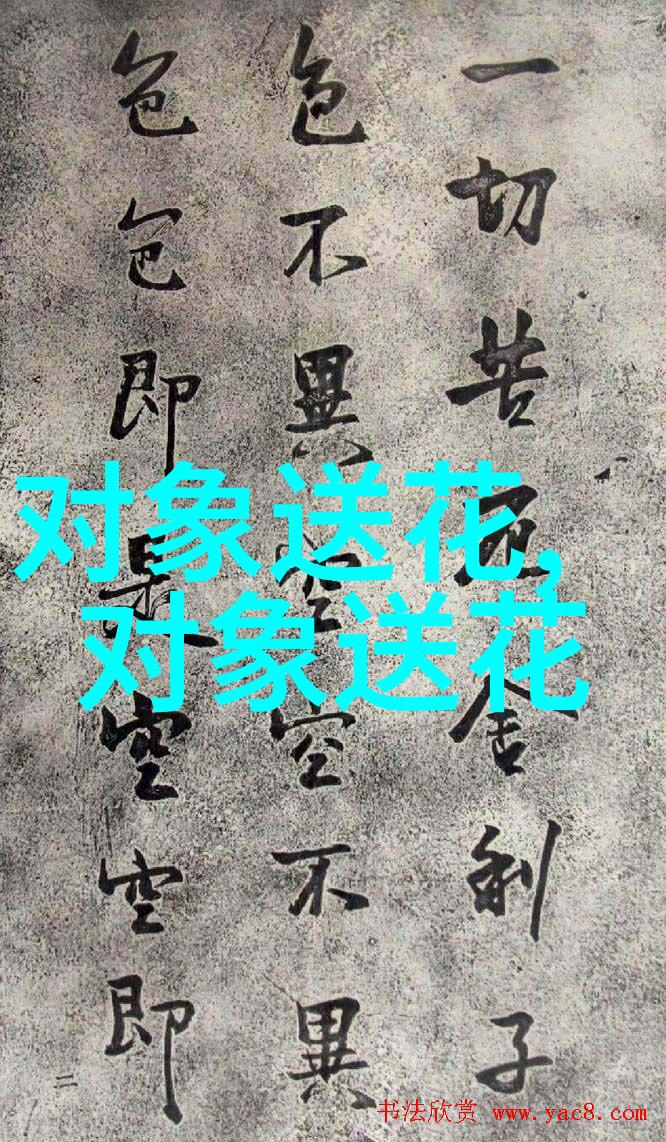 一切苦厄舍利子
色不異空空不異
色色即是空空即
二
对象送花,
对象送花
书法欣赏 www.yac8.com